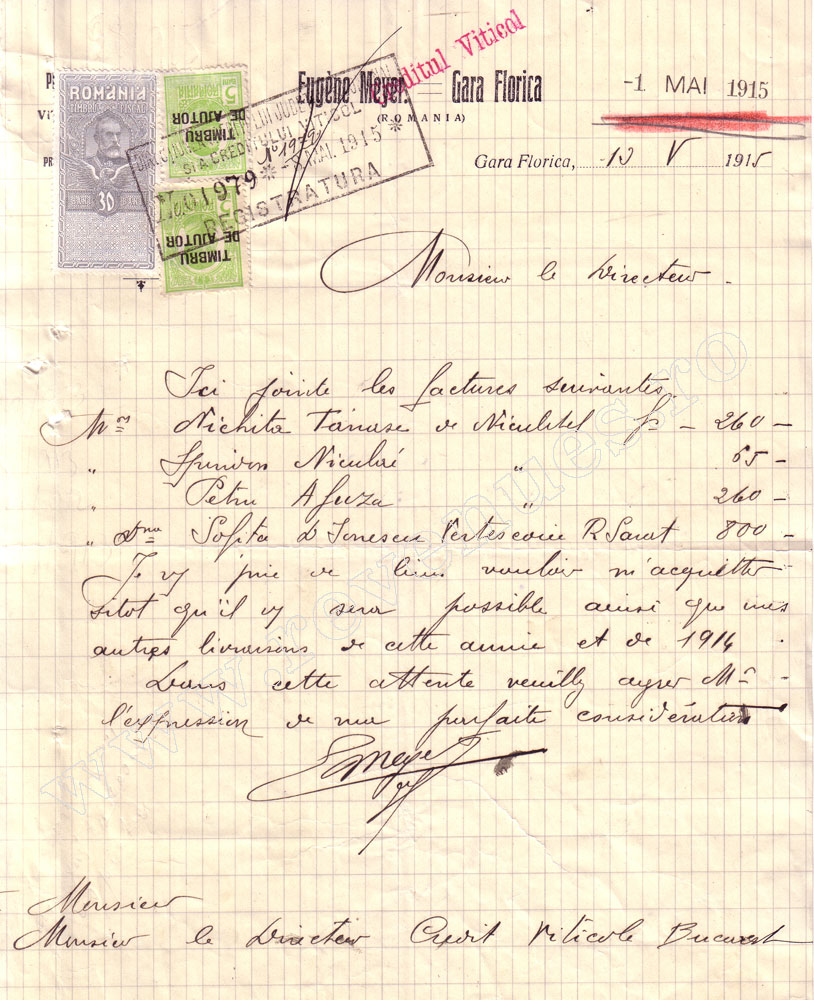 Creditul Viticol
Eugène Meyer. Gara Florica
(ROMANIA)
-1 MAI 1915
Gara Florica, 13 V 1915
TIMBRU FISCAL
30
5 BANI
ROMANIA
TIMBRU
DE AJUTOR
5
TIMBRU
DE AJUTOR
ȘI A CREDITULUI VITICOL
No 1979
No. 01979 * - MAI. 1915 *
REGISTRATURA
Monsieur le Directeur
Ici jointe les factures suivantes
Mrs Nichita Tanase de Niculitel fs - 260 -
" Spiridon Niculaé " 65 -
" Petru Afuza " 260 -
" Dna Sofita D Ionescu R Sarat 800 -
Je vs prie de bien vouloir m'acquitter
sitot qu'il vs sera possible ainsi que mes
autres livraisons de cette annie et de 1914 .
Dans cette attente veuilly agrer Mr -
l'expression de ma parfaite considération
EMeyer
Monsieur
Monsieur le Directeur Credit Viticole Bucarest
www.revenues.ro